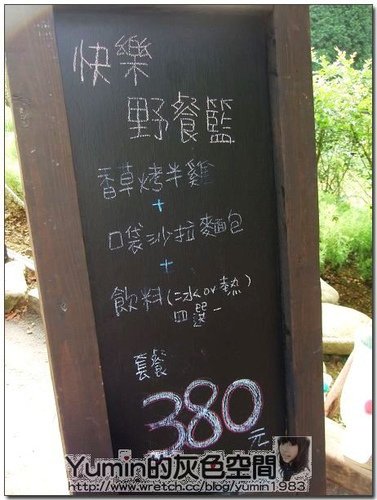 快樂
野餐籃
香草烤半雞
+
口袋沙拉麵包
+
飲料(冰or熱)
四選一
套餐
380元
Yumin的灰色空間
http://www.wretch.cc/blog/yumin1983